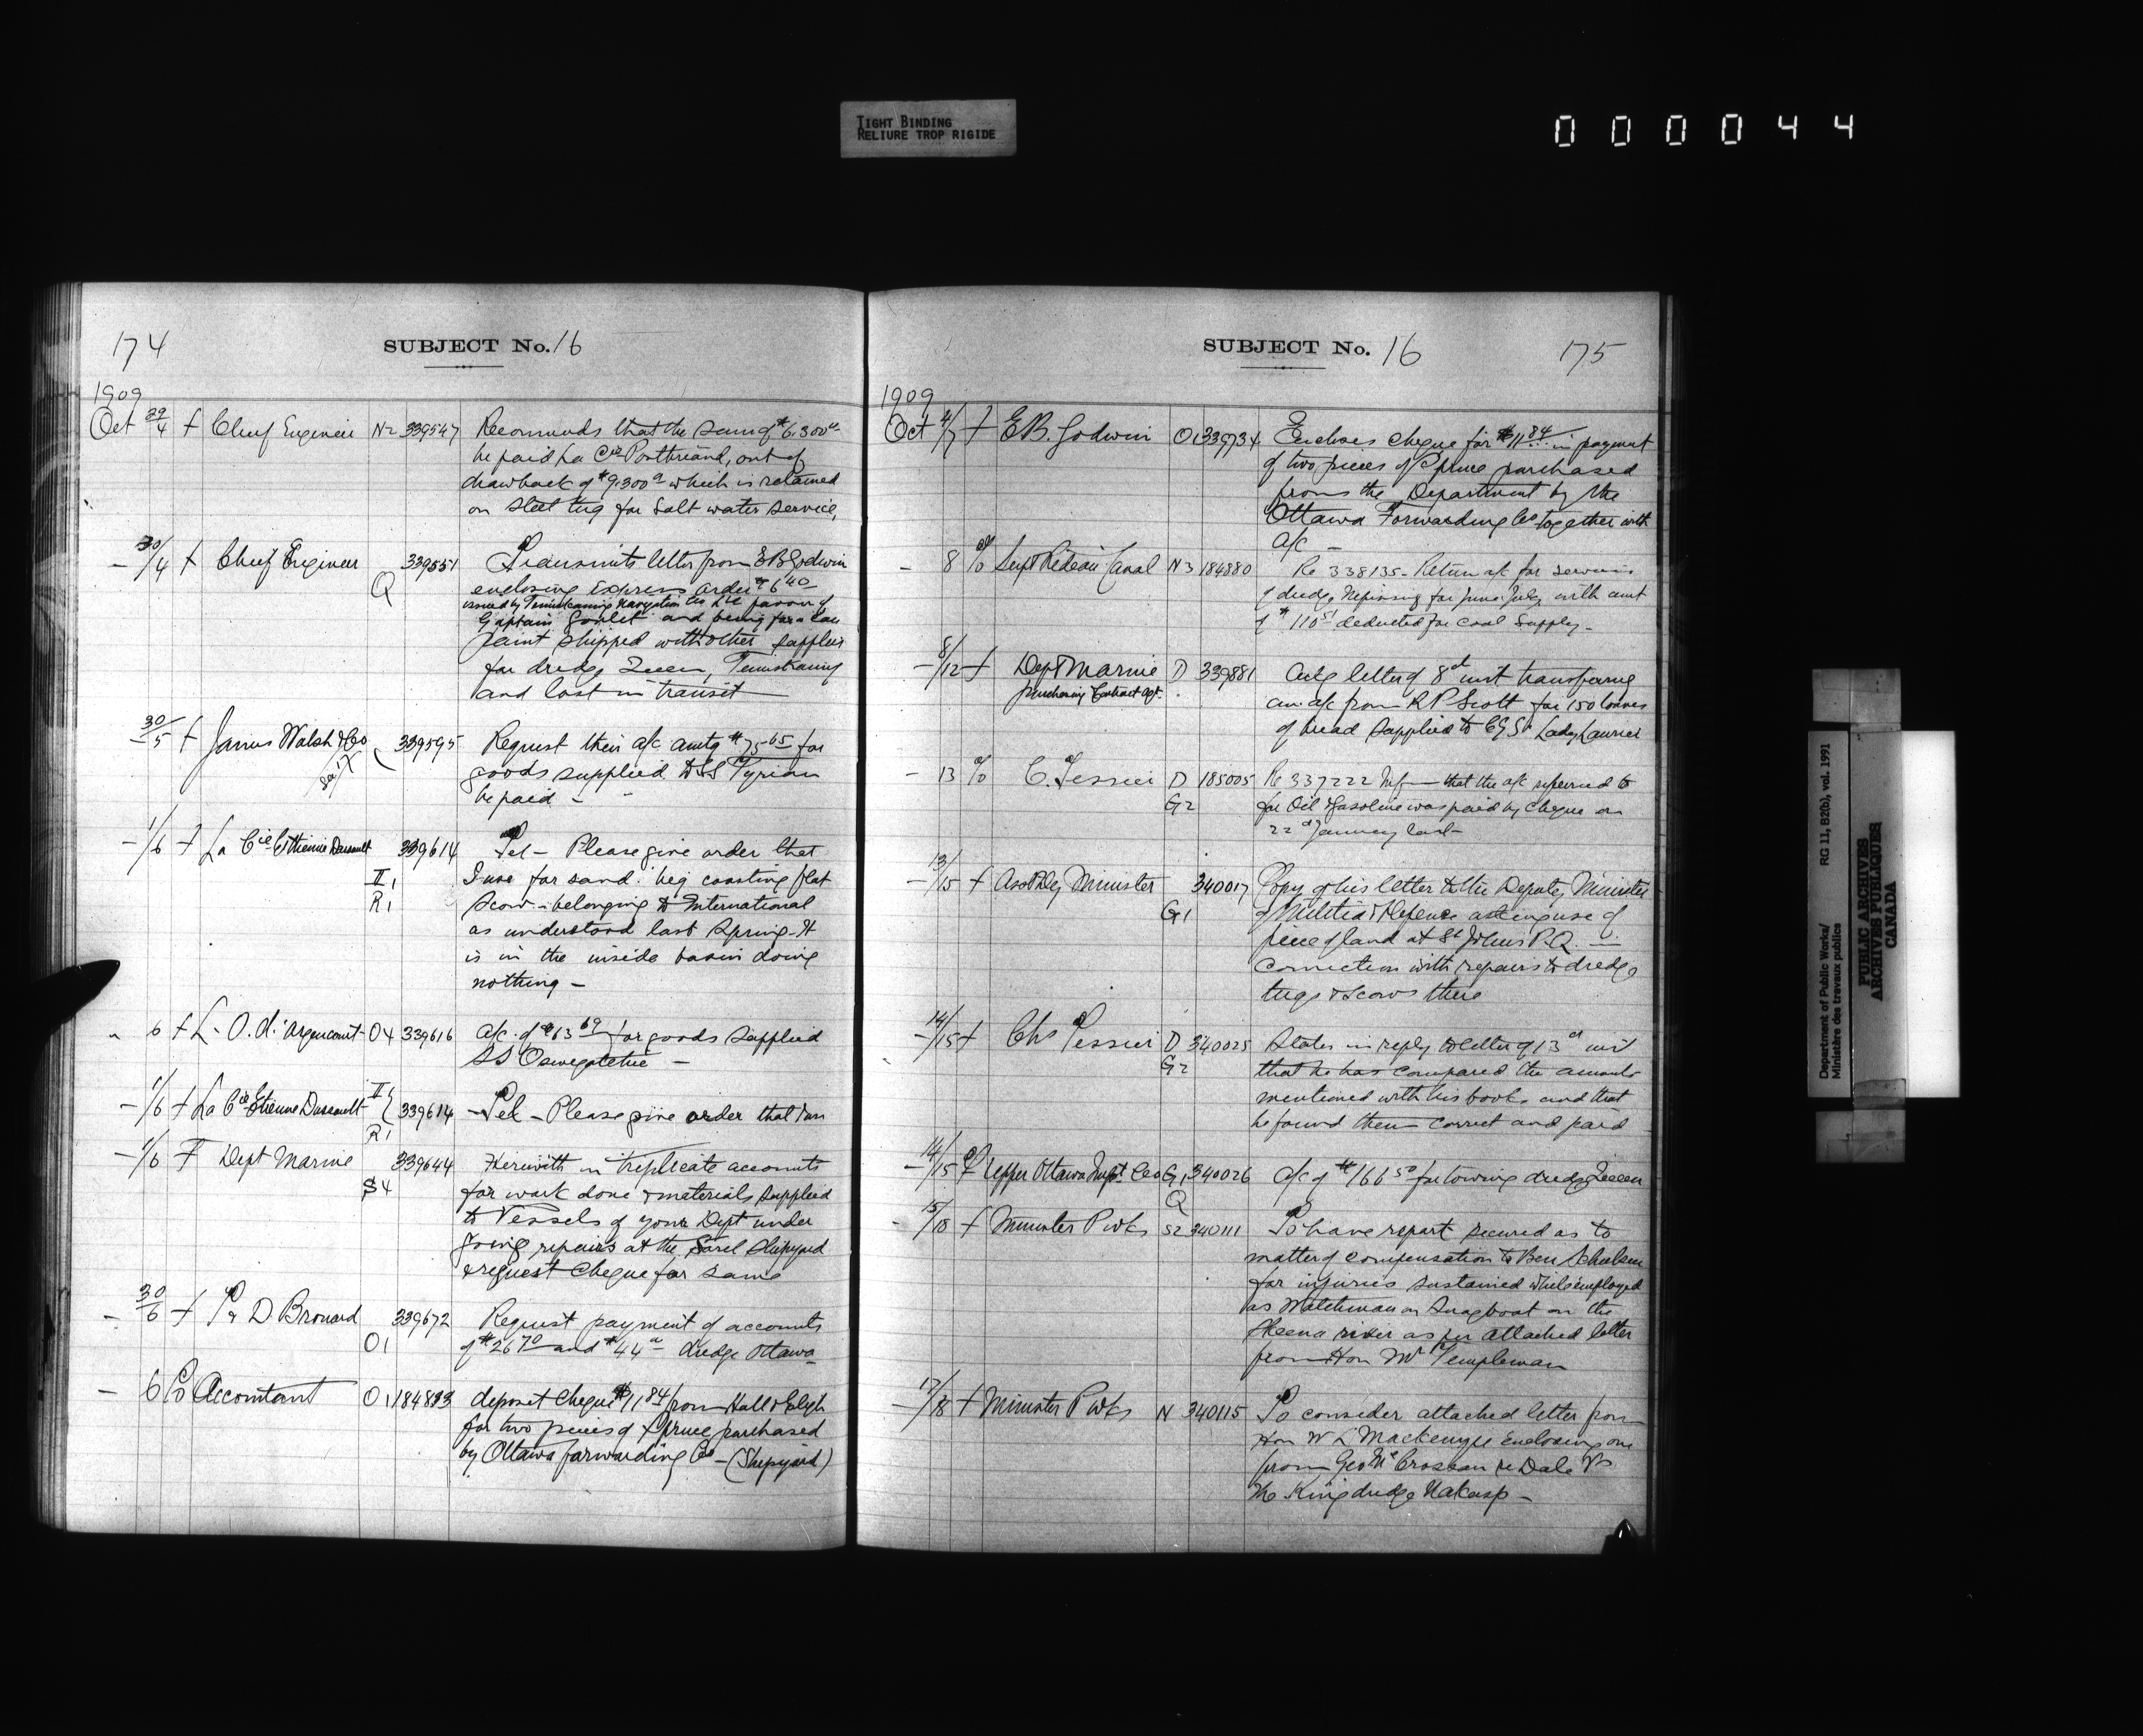 TIGHT BINDING
RELIURE TROP RIGIDE
000044
174
SUBJECT No. 16
1909
Oct 29/4 f Chief Engineer N2 339547 Recommends that the sum of $6.300
be paid La Cie Pontbriand, out of
drawback of $9.300 which is retained
on steel tug for Salt water service,
- 30/4 f Chief Engineer Q 339551 Transmits letter from E B Godwin
enclosing Express order $6.40
issued by Temiskaming Navigation Co in favour of
Captain Goulet and being for a
paint shipped with other supplies
for dredge Queen, Temiskaming
and lost in transit
- 30/5 f James Walsh & Co 339595 Request their a/c amtg $75.65 for
goods supplied to SS Tyrian
be paid -
- 1/6 f La Cie Etienne Dussault 339614 Tel - Please give order that
II 1 I use for sand. coasting flat
R1 Scow - belonging to International
as understood last Spring - It
is in the inside basin doing
nothing -
" 6 f L. O. d'Argencourt O4 339616 a/c of $63.69 for goods supplied
SS Oswegatchie -
- 1/6 f La Cie Etienne Dussault II 1 R1 339614 - Tel - Please give order that I use
- 1/6 f Dept Marine 339644 Herewith in triplicate accounts
S4 for work done & materials supplied
to Vessels of your Dept under
going repairs at the Sorel Shipyard
& request cheque for same
- 30/6 f P & D Brouard 339672 Request payment of accounts
O1 of $26.70 and $44 dredge Ottawa
- 6 Accountant O1 184833 deposit cheque $11.84 from Hall
for two pieces of Spruce purchased
by Ottawa forwarding Co - (Shipyard)
SUBJECT No. 16
175
1909
Oct 4/7 f E.B. Godwin O1 339734 Encloses cheque for $11.84 in payment
of two pieces of Spruce purchased
from the Department by the
Ottawa Forwarding Co together with
a/c -
- 8 Supt Rideau Canal N3 184880 Re 338135 - Return a/c for services
of dredge Nipissing for June & July with amt
of $110.51 deducted for coal supply -
- 8/12 f Dept Marine D 339881 Ackg letter of 8th inst transferring
Purchasing & Contract Agt. an a/c from R P Scott for 150 loaves
of bread supplied to CGS Lady Laurier
- 13 C. Tessier D 185005 Re 337222 Inf - that the a/c referred to
G2 for Oil & Gasoline was paid by cheque on
22nd January last -
- 13/15 f Asst Dty Minister 340017 Copy of his letter to the Deputy Minister
G1 of Militia & Defence asking use of
piece of land at St Johns P.Q. in
connection with repairs to dredge
tugs & scows there
- 14/15 f Chs Tessier D 340025 States in reply to letter of 13th inst
G2 that he has compared the amounts
mentioned with his books and that
he found them correct and paid
- 14/15 f Upper Ottawa Impt Co G1 340026 a/c of $166.50 for towing dredge Queen
Q
- 15/18 f Minister P wks S2 340111 To have report secured as to
matter of compensation to Ben
for injuries sustained while employed
as Watchman on Snagboat on the
Skeena river as per attached letter
from Hon Mr Templeman
- 17/18 f Minister P wks N 340115 To consider attached letter from
Hon W L Mackenzie Enclosing one
from Geo McCrossan re Dale Vs
The King dredge Nakusp -
Department of Public Works/
Ministère des travaux publics
RG 11, B2(b), vol. 1991
PUBLIC ARCHIVES
ARCHIVES PUBLIQUES
CANADA